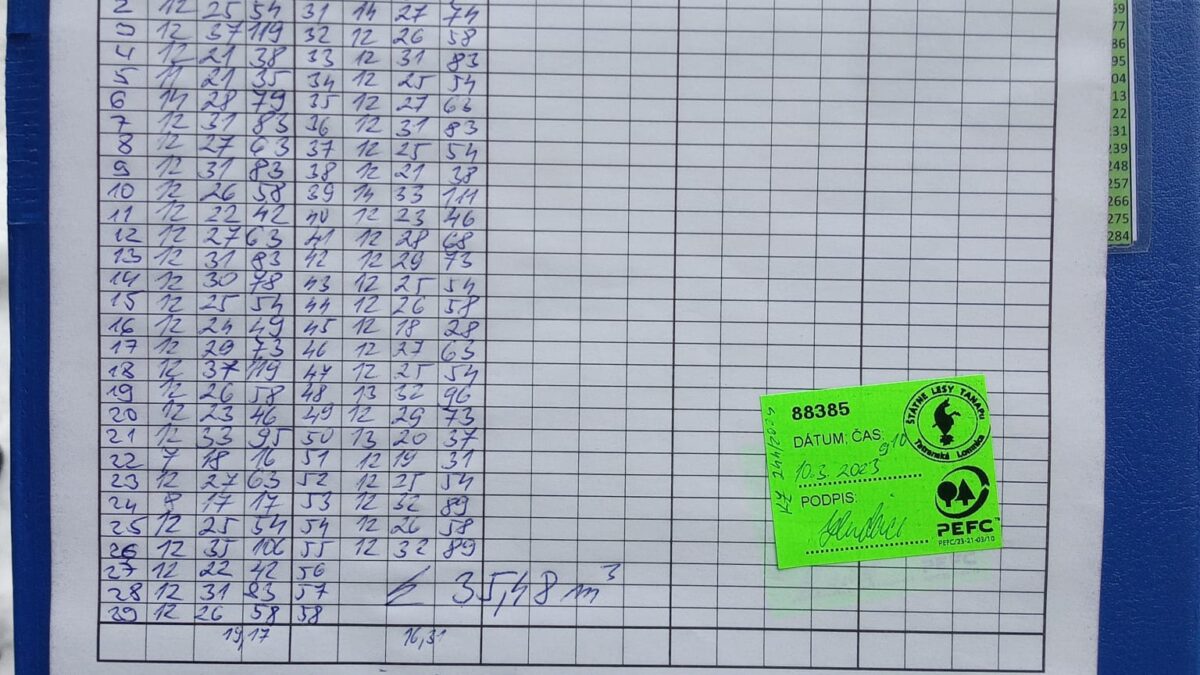 2 12 25 54 31 14 27 74
3 12 37 119 32 12 26 58
4 12 21 38 33 12 31 83
5 11 21 35 34 12 25 54
6 14 28 79 35 12 27 63
7 12 31 83 36 12 31 83
8 12 27 63 37 12 25 54
9 12 31 83 38 12 21 38
10 12 26 58 39 14 33 111
11 12 22 42 40 12 23 46
12 12 27 63 41 12 28 68
13 12 31 83 42 12 29 73
14 12 30 78 43 12 25 54
15 12 25 54 44 12 26 58
16 12 24 49 45 12 18 28
17 12 29 73 46 12 27 63
18 12 37 119 47 12 25 54
19 12 26 58 48 13 32 96
20 12 23 46 49 12 29 73
21 12 33 95 50 13 20 37
22 7 18 16 51 12 19 31
23 12 27 63 52 12 25 54
24 8 17 17 53 12 32 89
25 12 25 54 54 12 26 58
26 12 35 106 55 12 32 89
27 12 22 42 56
28 12 31 83 57
29 12 26 58 58
35,48 m³
19,17 16,31
59
77
86
95
204
213
222
231
239
248
257
266
275
284
88385
DÁTUM, ČAS: 9.10
10.3.2023
PODPIS:
ŠTÁTNE LESY TANAPu
Tatranská Lomnica
PEFC™
PEFC/23-21-03/10